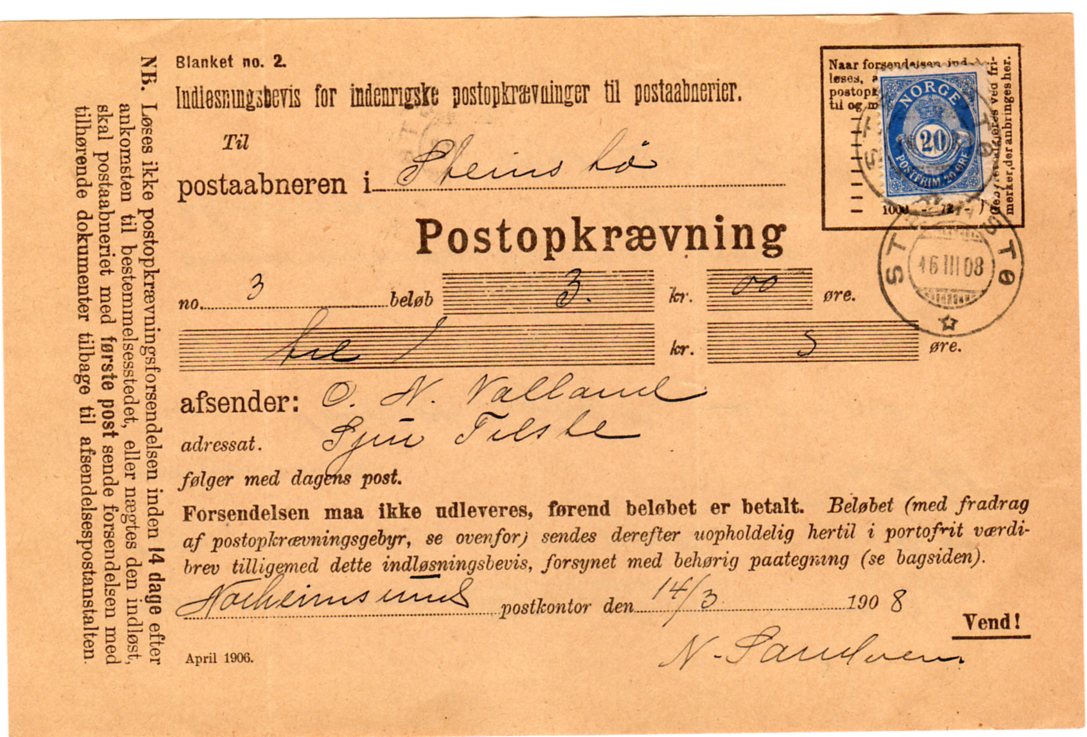 Blanket no. 2.
Indløsningsbevis for indenrigske postopkrævninger til postaabnerier.
Til
postaabneren i Steinstö
Postopkrævning
no. 3 beløb 3. kr. 00 øre.
tre / kr. øre.
afsender: O. N. Valland
adressat. Sjur
følger med dagens post.
Forsendelsen maa ikke udleveres, førend beløbet er betalt. Beløbet (med fradrag
af postopkrævningsgebyr, se ovenfor) sendes derefter uopholdelig hertil i portofrit værdi-
brev tilligemed dette indløsningsbevis, forsynet med behørig paategning (se bagsiden).
Norheimsund postkontor den 14/3 1908
Vend!
N. Sandven
April 1906.
NB. Løses ikke postopkrævningsforsendelsen inden 14 dage efter
ankomsten til bestemmelsesstedet, eller nægtes den indløst,
skal postaabneriet med første post sende forsendelsen med
tilhørende dokumenter tilbage til afsendelsespostanstalten.
Naar forsendelsen ind-
løses, a
postopk
til og m
1000
ved fri-
merker, der anbringes her.
NORGE
20
POSTFRIM. 20 ØRE
STEINSTØ
16 III 08